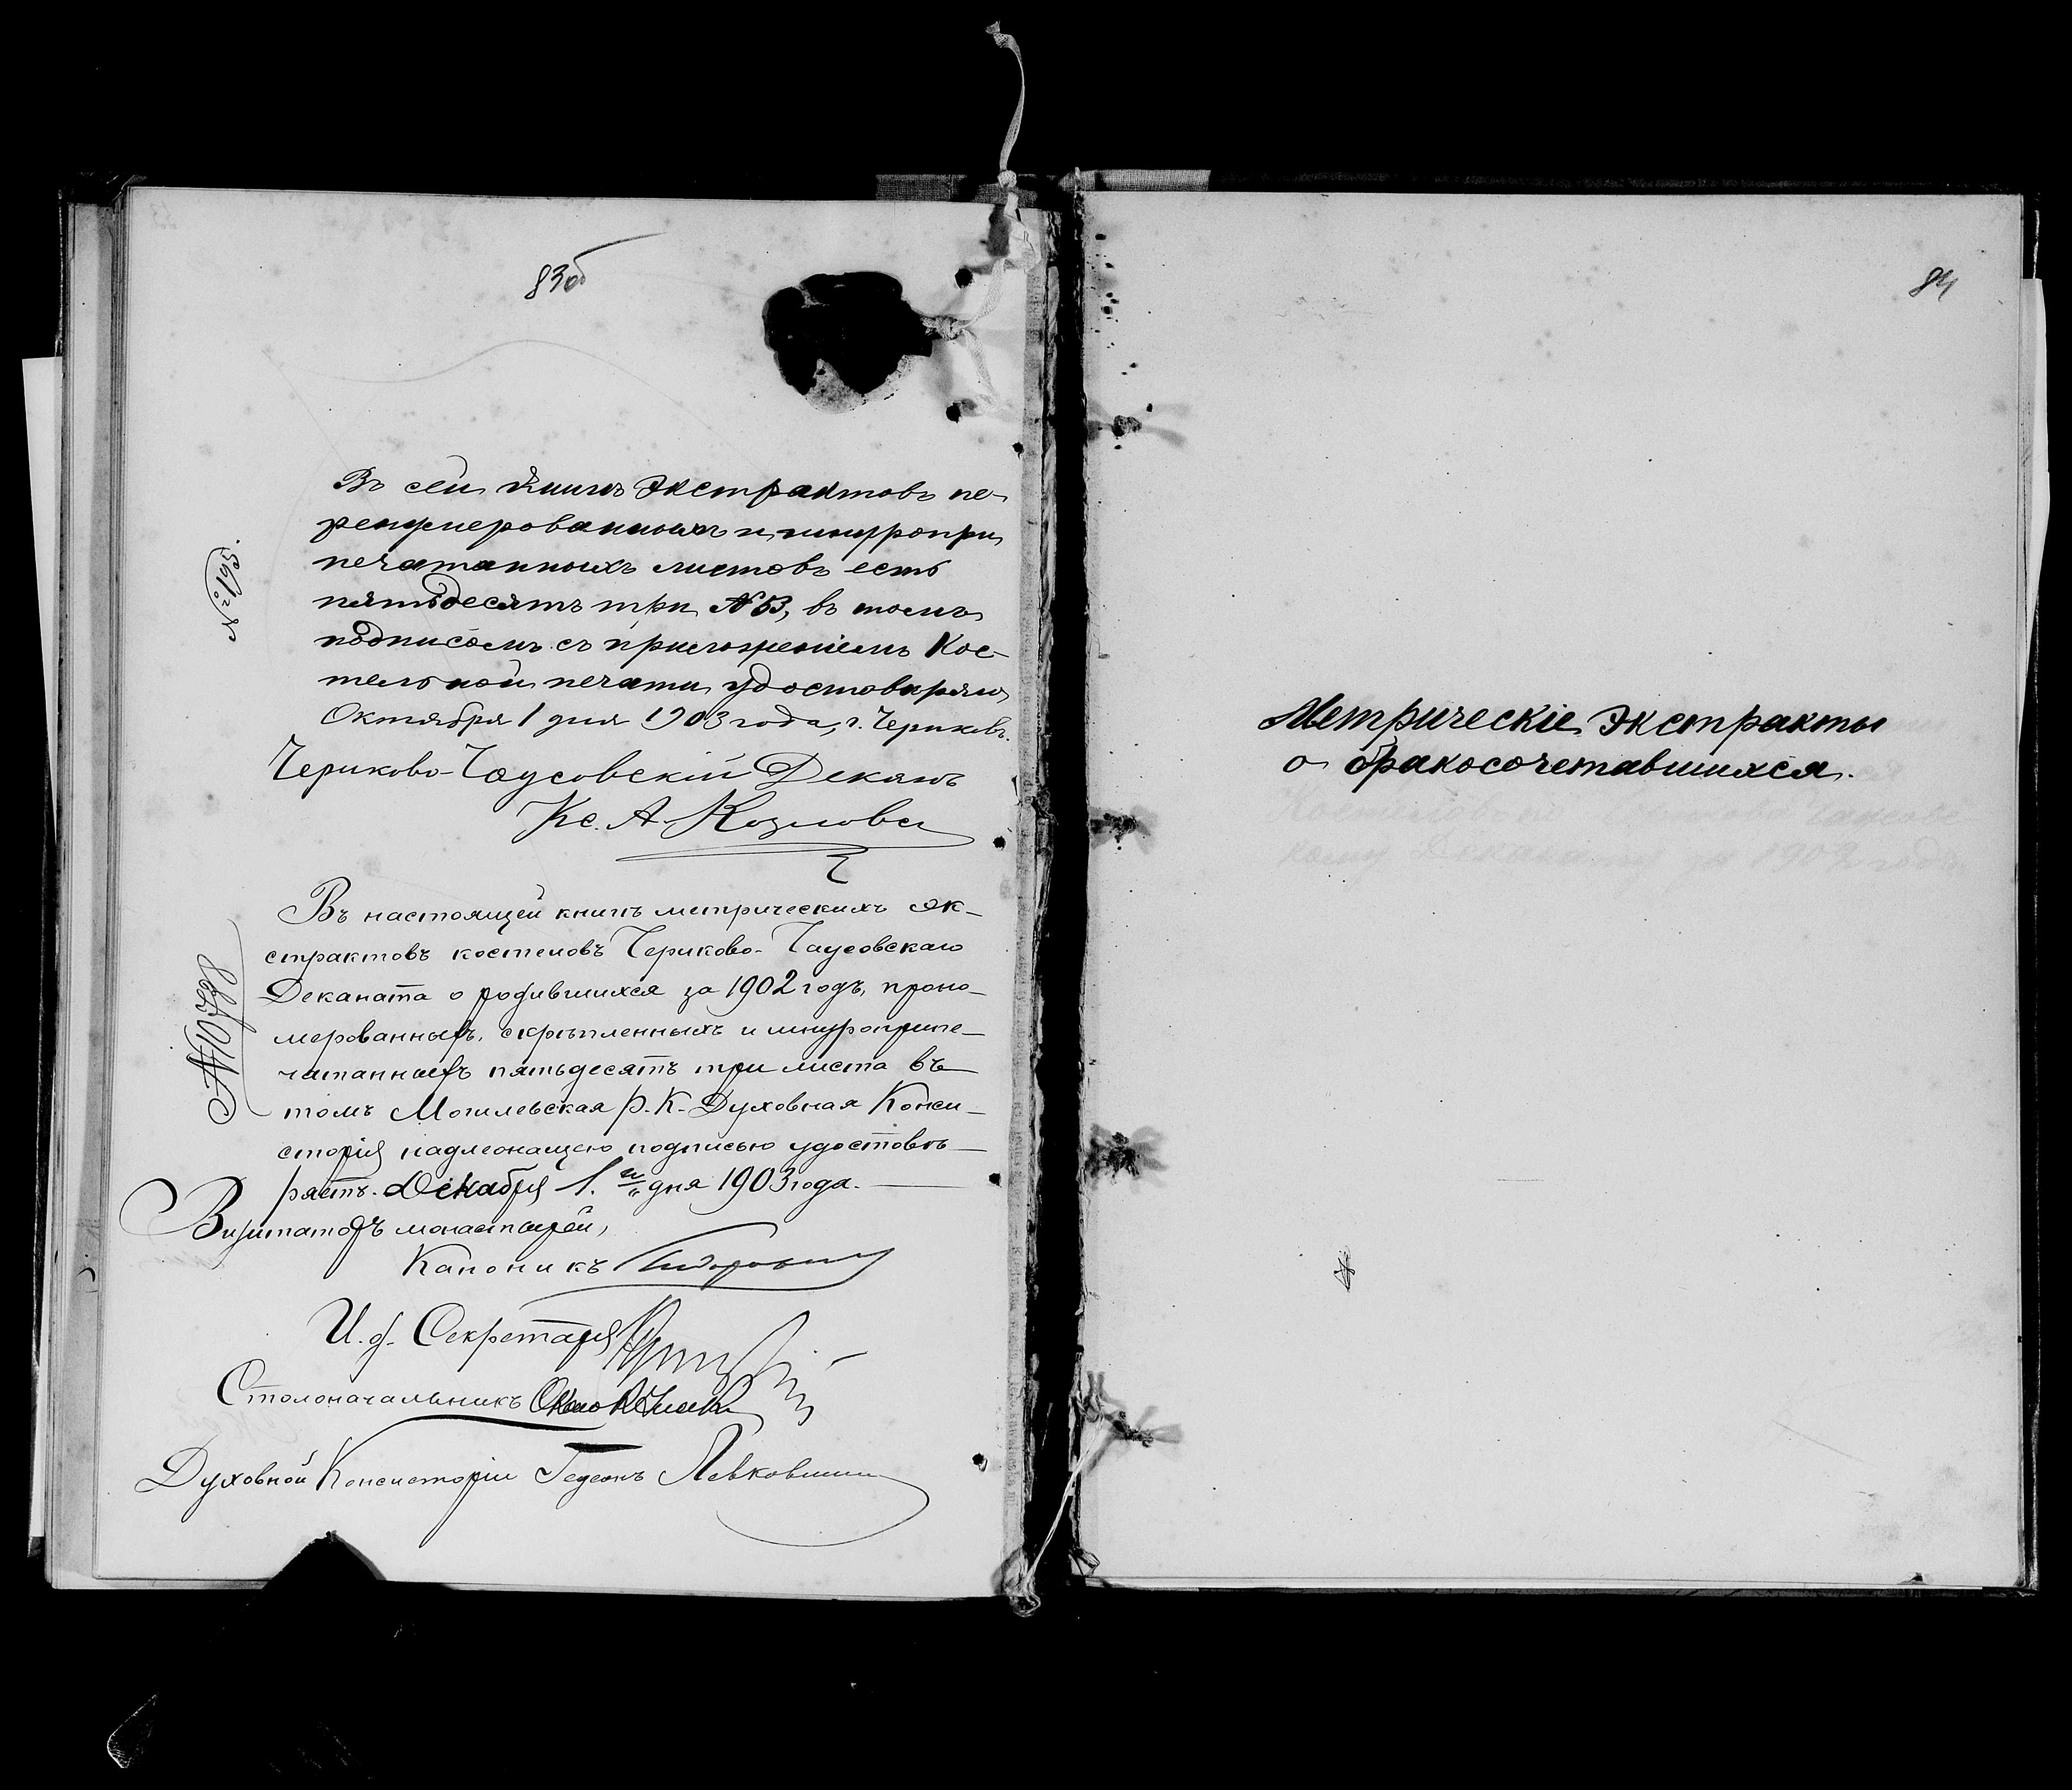 83об
Въ сей книгѣ Экстрактовъ пе-
ренумерованныхъ и шнуропри
печатанныхъ листовъ есть
пятьдесятъ три № 53, въ томъ
подписомъ съ приложеніемъ Кос-
тельной печати удостовѣряю
Октября 1 дня 1903 года, г. Чериковъ.
Чериково-Чаусовскій Деканъ
Кс. А. Козловск
№ 195.
Въ настоящей книгѣ метрическихъ эк-
страктовъ костеловъ Чериково-Чаусовскаго
Деканата о родившихся за 1902 годъ, проно-
мерованныхъ, скрѣпленныхъ и шнуроприпе-
чатанныхъ пятьдесятъ три листа въ
томъ Могилевская Р.-К. Духовная Конси-
сторія надлежащею подписью удостовѣ-
ряетъ. Декабря 1. дня 1903 года.
Визитаторъ монастырей,
Каноникъ
И. д. Секретаря
Столоначальникъ
Духовной Консисторіи Гедеонъ Левковичъ
84
Метрическіе Экстракты
о бракосочетавшихся.